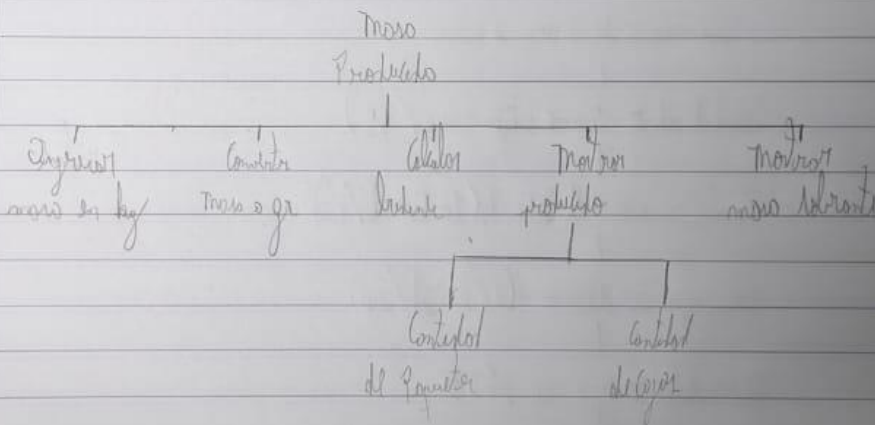 Masa
Producido
Ingresar
masa en kg
Convertir
masa a gr
Calcular
Mostrar
producido
Mostrar
masa sobrante
Cantidad
de Paquetes
Cantidad
de Cajas